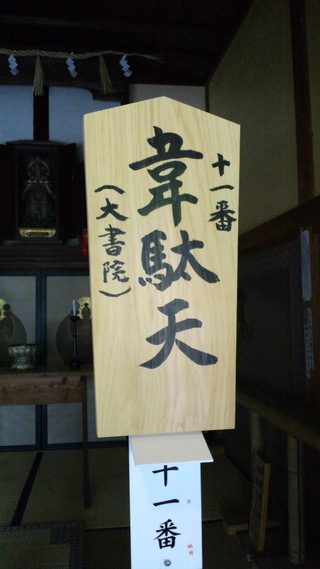 十一番
韋駄天
(大書院)
十一番